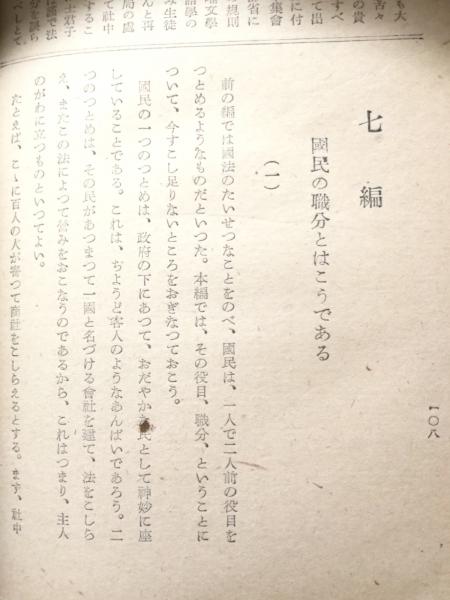 七編
國民の職分とはこうである
(一)
前の編では國法のたいせつなことをのべ、國民は、一人で二人前の役目を
つとめるようなものだといつた。本編では、その役目、職分、ということに
ついて、今すこし足りないところをおぎなつておこう。
國民の一つのつとめは、政府の下にあつて、おだやかな民として神妙に座
していることである。これは、ちようど客人のようなあんばいであろう。二
つのつとめは、その民があつまつて一國と名づける會社を建て、法をこしら
え、またこの法によつて営みをおこなうのであるから、これはつまり、主人
のがわに立つものといつてよい。
たとえば、こゝに百人の人が寄つて商社をこしらえるとする。まず、社中
一〇八